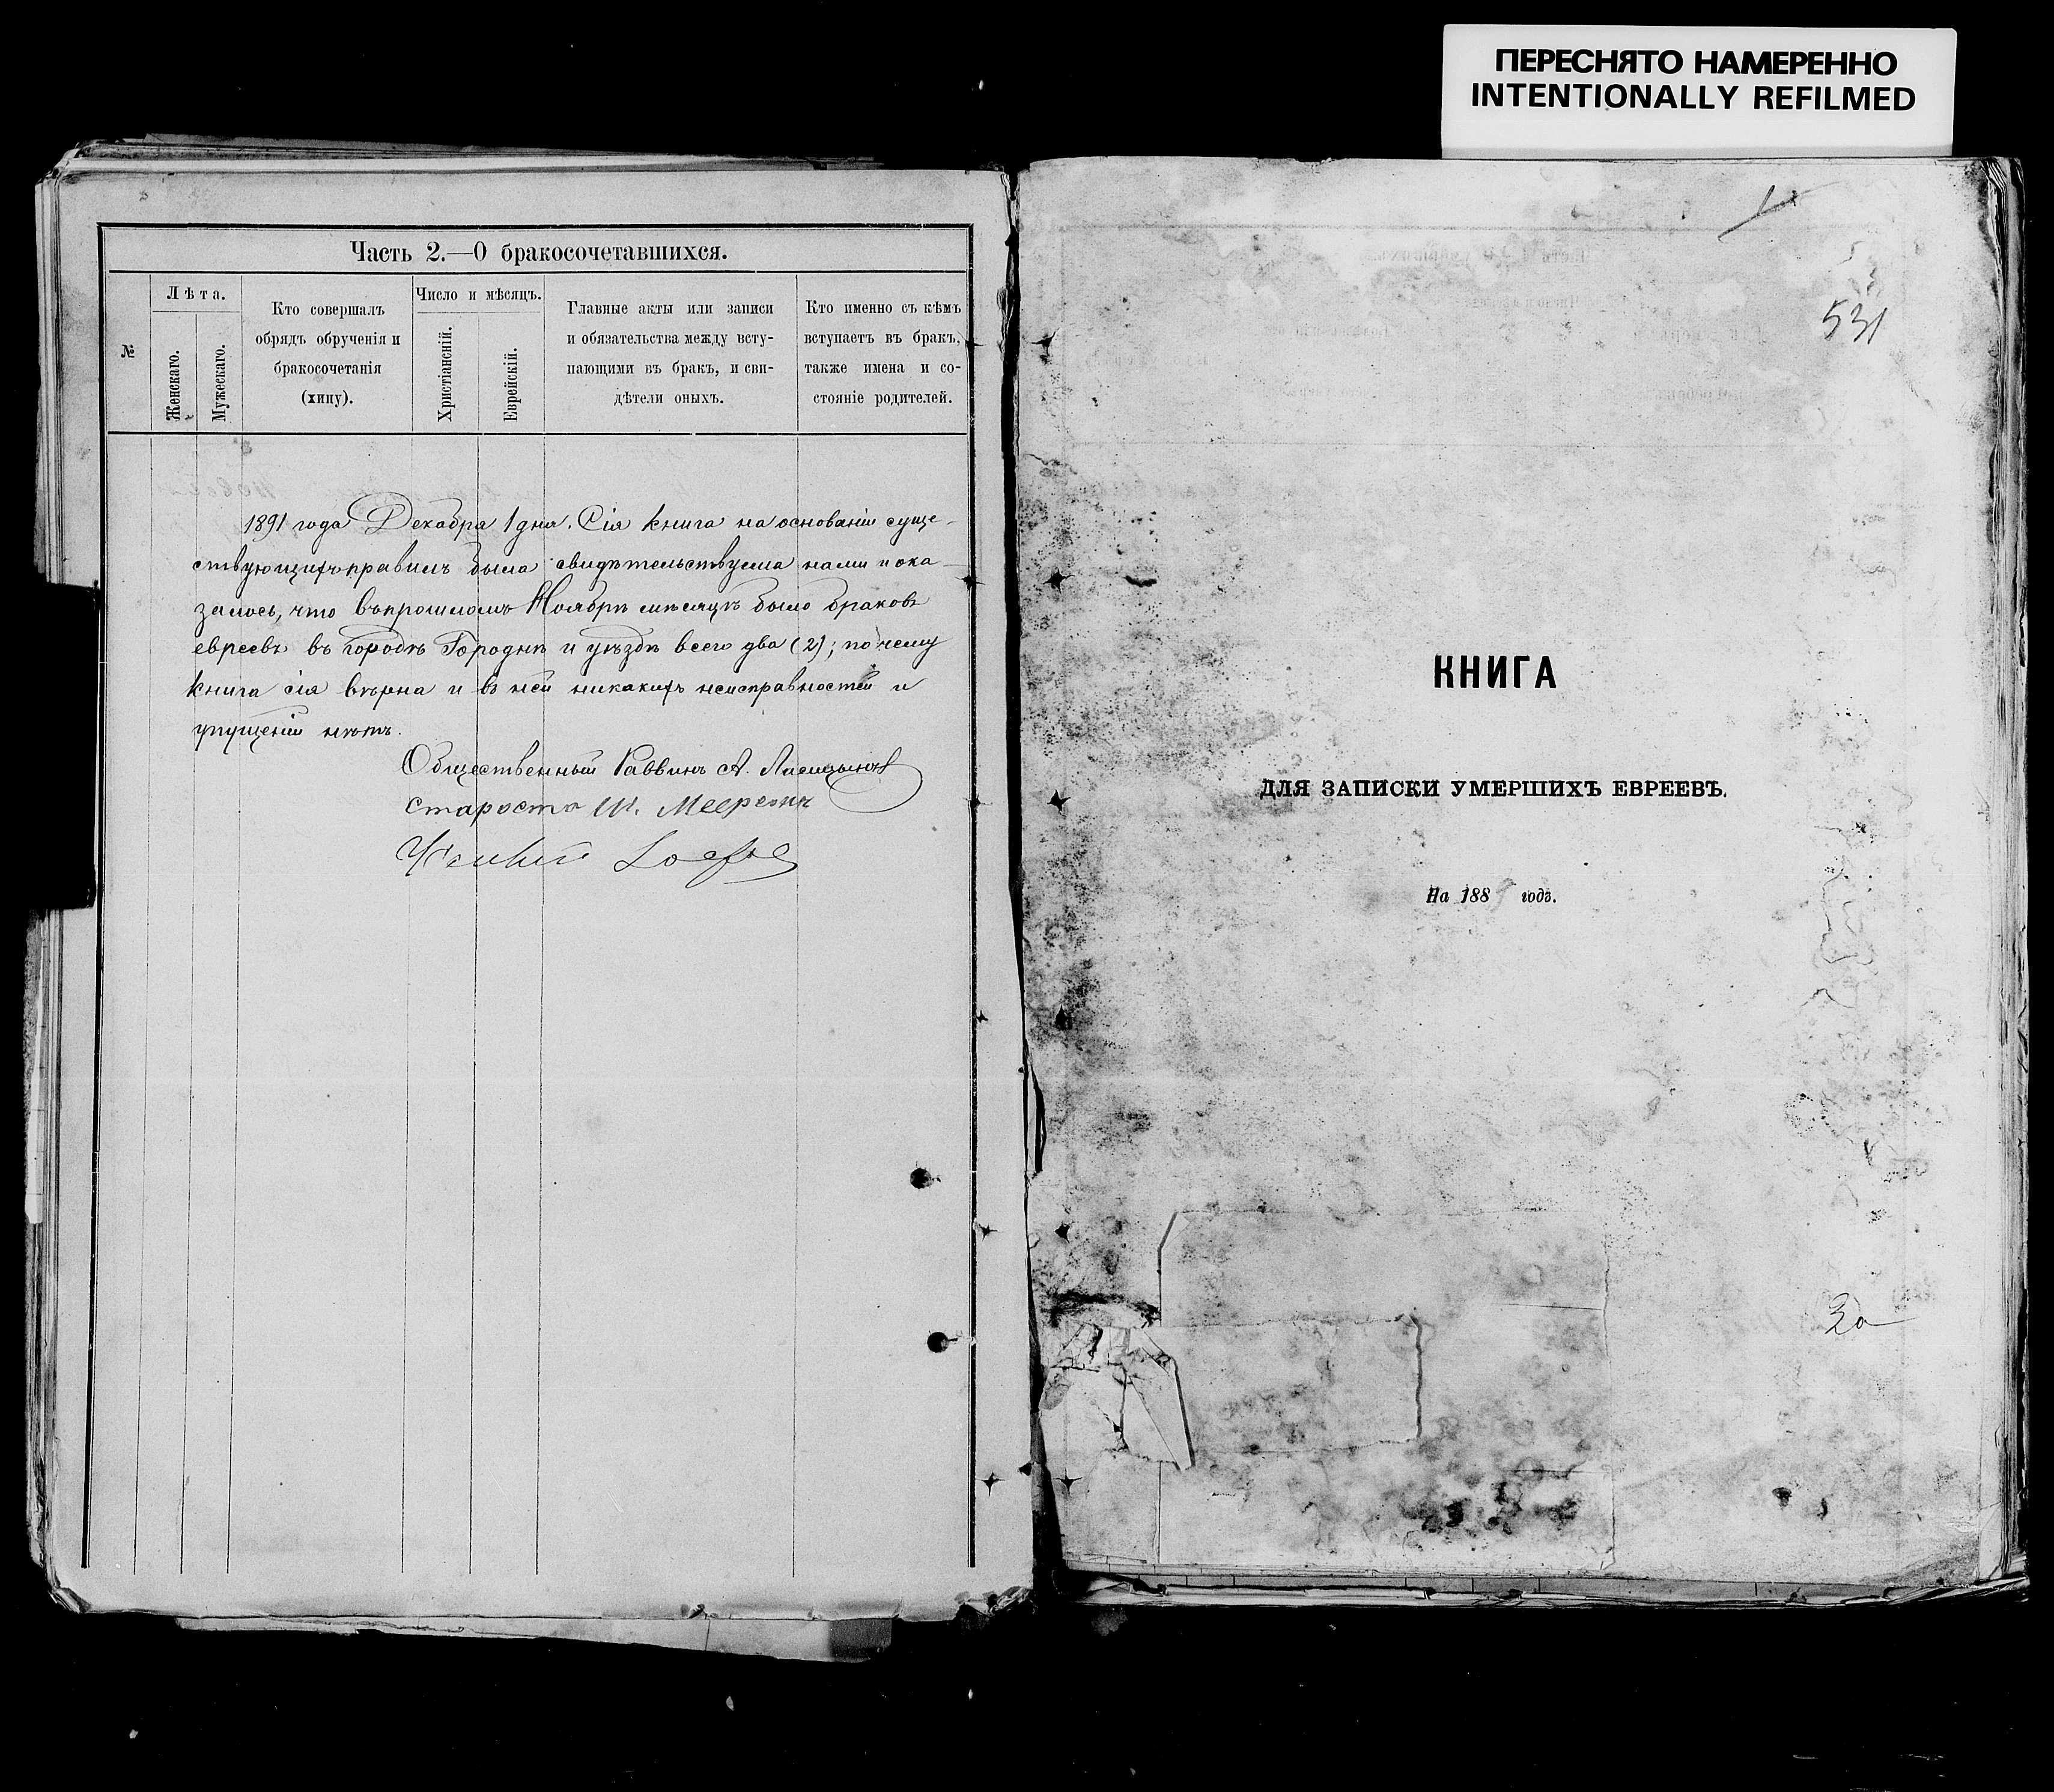 ПЕРЕСНЯТО НАМЕРЕННО
INTENTIONALLY REFILMED
Часть 2.—О бракосочетавшихся.
№
Лѣта.
Женскаго.
Мужескаго.
Кто совершалъ
обрядъ обрученія и
бракосочетанія
(хипу).
Число и мѣсяцъ.
Христіанскій.
Еврейскій.
Главные акты или записи
и обязательства между всту-
пающими въ бракъ, и сви-
дѣтели оныхъ.
Кто именно съ кѣмъ
вступаетъ въ бракъ,
также имена и со-
стояніе родителей.
1891 года Декабря 1 дня. Сія книга на основаніи суще-
ствующихъ правилъ была свидѣтельствуема нами и ока-
залось, что въ прошломъ Ноябрѣ мѣсяцѣ было браковъ
евреевъ въ городѣ Городнѣ и уѣздѣ всего два (2); почему
книга сія вѣрна и въ ней никакихъ неисправностей и
упущеній нѣтъ.
Общественный Раввинъ А. Лисицынъ
Староста Ш. Меерсонъ
531
КНИГА
ДЛЯ ЗАПИСКИ УМЕРШИХЪ ЕВРЕЕВЪ.
На 188 годъ.